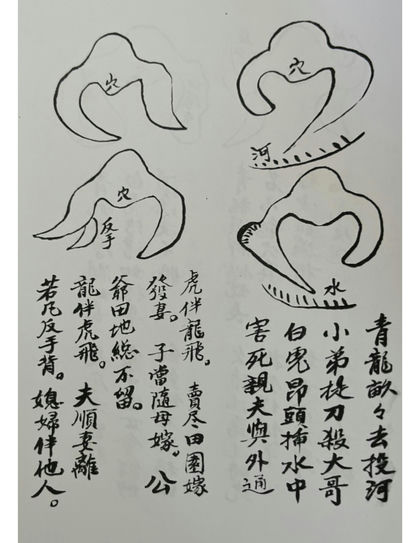 穴
河
水
青龍畝々去投河
小弟提刀殺大哥
白虎昂頭插水中
害死親夫與外通
穴
穴
反手
虎伴龍飛。賣尽田園嫁
發妻。子當隨母嫁。公
爺田地總不留。
龍伴虎飛。夫順妻離
若凡反手背。媳婦伴他人。